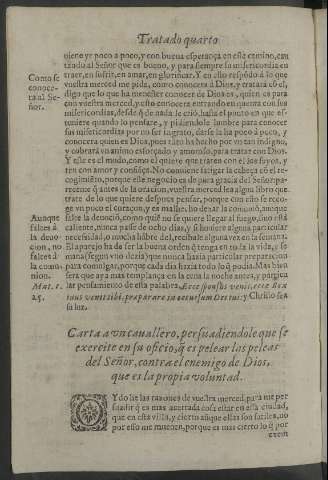 Tratado quarto
uiene yr poco a poco, y con buena esperança en este camino, en
trãdo al Señor que es bueno, y para siempre su misericordia en
traer, en sufrir, en amar, en glorificar. Y en esto respõdo a lo que
Como se
conoce-
ra al Se-
ñor.
vuestra merced me pide, como conocera a Dios, y tratara es el,
digo que lo que ha menester conocer de Dios es, quien es para
con vuestra merced, y esto conocera entrando en quenta con sus
misericordias, desde q̃ de nada le crió, hasta el punto en que es-
tuuiere quando lo pensare, y pidiendole lumbre para conocer
sus misericordias por no ser ingrato, darse la ha poco a poco, y
conocera quien es Dios, pues tãto ha hecho por vn tan indigno,
y cobrará vn animo esforçado y amoroso, para tratar con Dios.
Y este es el modo, como el quiere que traten con el los suyos, y
ten con amor y confiãça. No conuiene fatigar la cabeça cõ el re-
cogimiẽto, porque esse negocio es de pura gracia del Señor: pa-
receme q̃ antes de la oracion, vuestra merced lea algun libro que
trate de lo que quiere despues pensar, porque con esso se reco-
ge vn poco el coraçon, y es mas
Aunque
faltes á
la deuo-
cion, no
faltes á
la comu-
nion.
Mat. c.
25.
falte la deuociõ, como quiẽ no se quiere llegar al fuego, sino está
caliente, nunca passe de ocho dias, y si huuiere alguna particular
necessidad, o mucha hãbre del, recibale alguna vez en la semana.
El aparejo ha de ser la buena orden q̃ tenga en toda la vida, y se-
mana
para comulgar, porque cada dia hazia todo lo q̃ podia. Mas bien
sera que aya mas templança en la cena la noche antes, y por la
las pensamiento de esta palabra, Ecce sponsus venit, ecce Rex
tuus venit tibi, præparare in occursum Dei tui: y Christo sea
su luz.
Carta a vn cauallero, persuadiendole que se
exercite en su oficio, q̃ es pelear las peleas
del Señor, contra el enemigo de Dios,
que es la propia voluntad.
Ydo he las razones de vuestra merced, para me per
suadir q̃ es mas acertada cosa estar en essa ciudad,
que en esta villa, y cierto aũque ellas son sutiles, no
por esso me mueuen, porque es mas cierto lo q̃ por